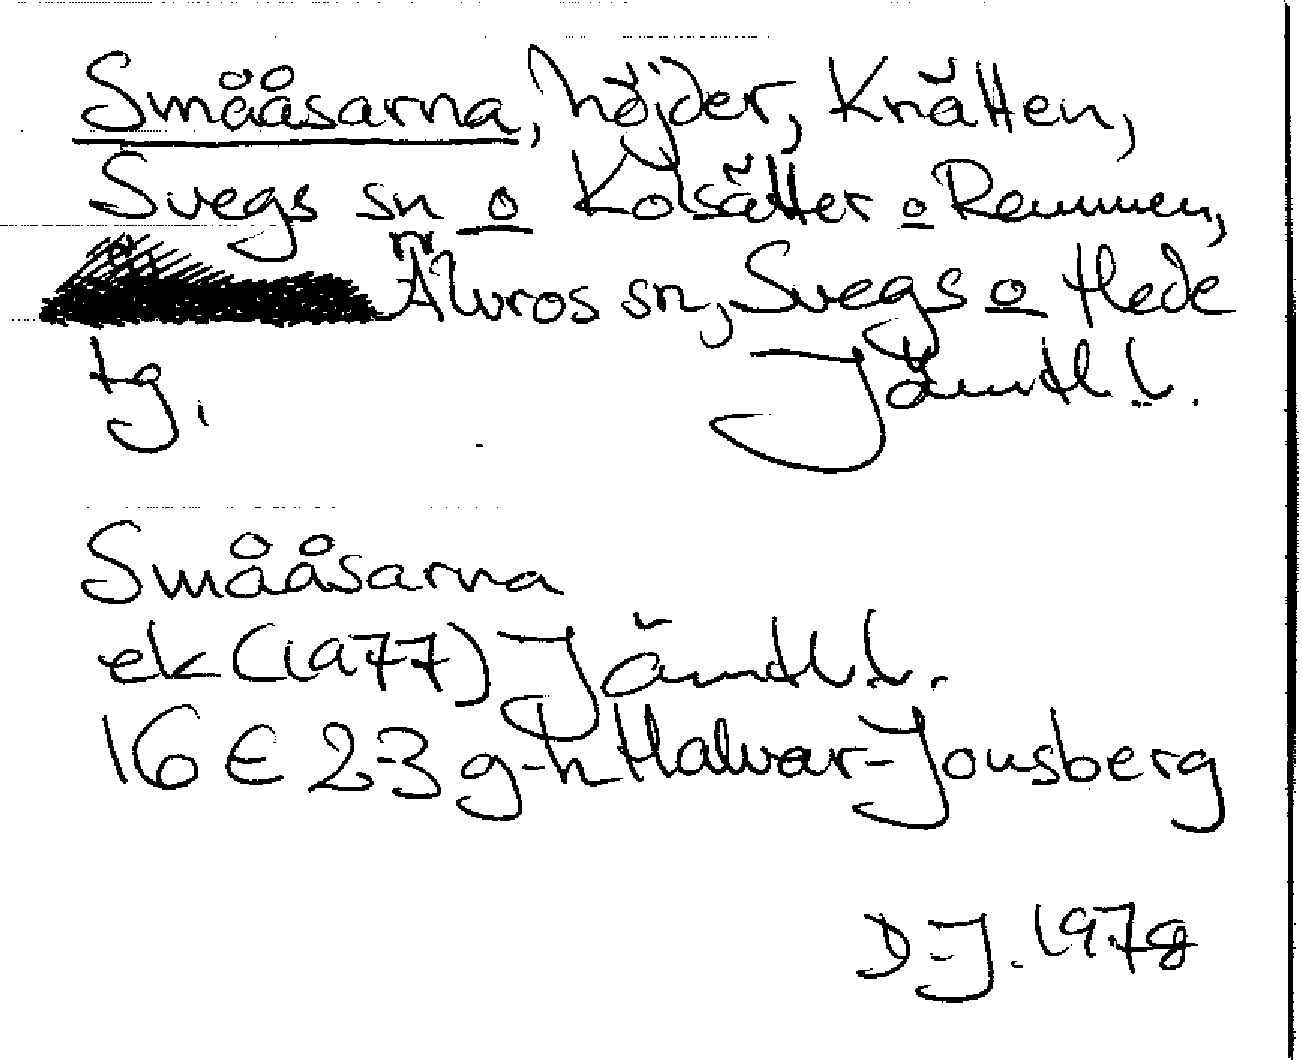 Smååsarna, höjder, Knätten,
Svegs sn o Kolsätter o Remmen,
Älvros sn, Svegs o Hede
tg. Jämtl. l.
Smååsarna
ek (1977) Jämtl. l.
16 E 2-3 g-h Halvar-Jonsberg
D-J. 1978